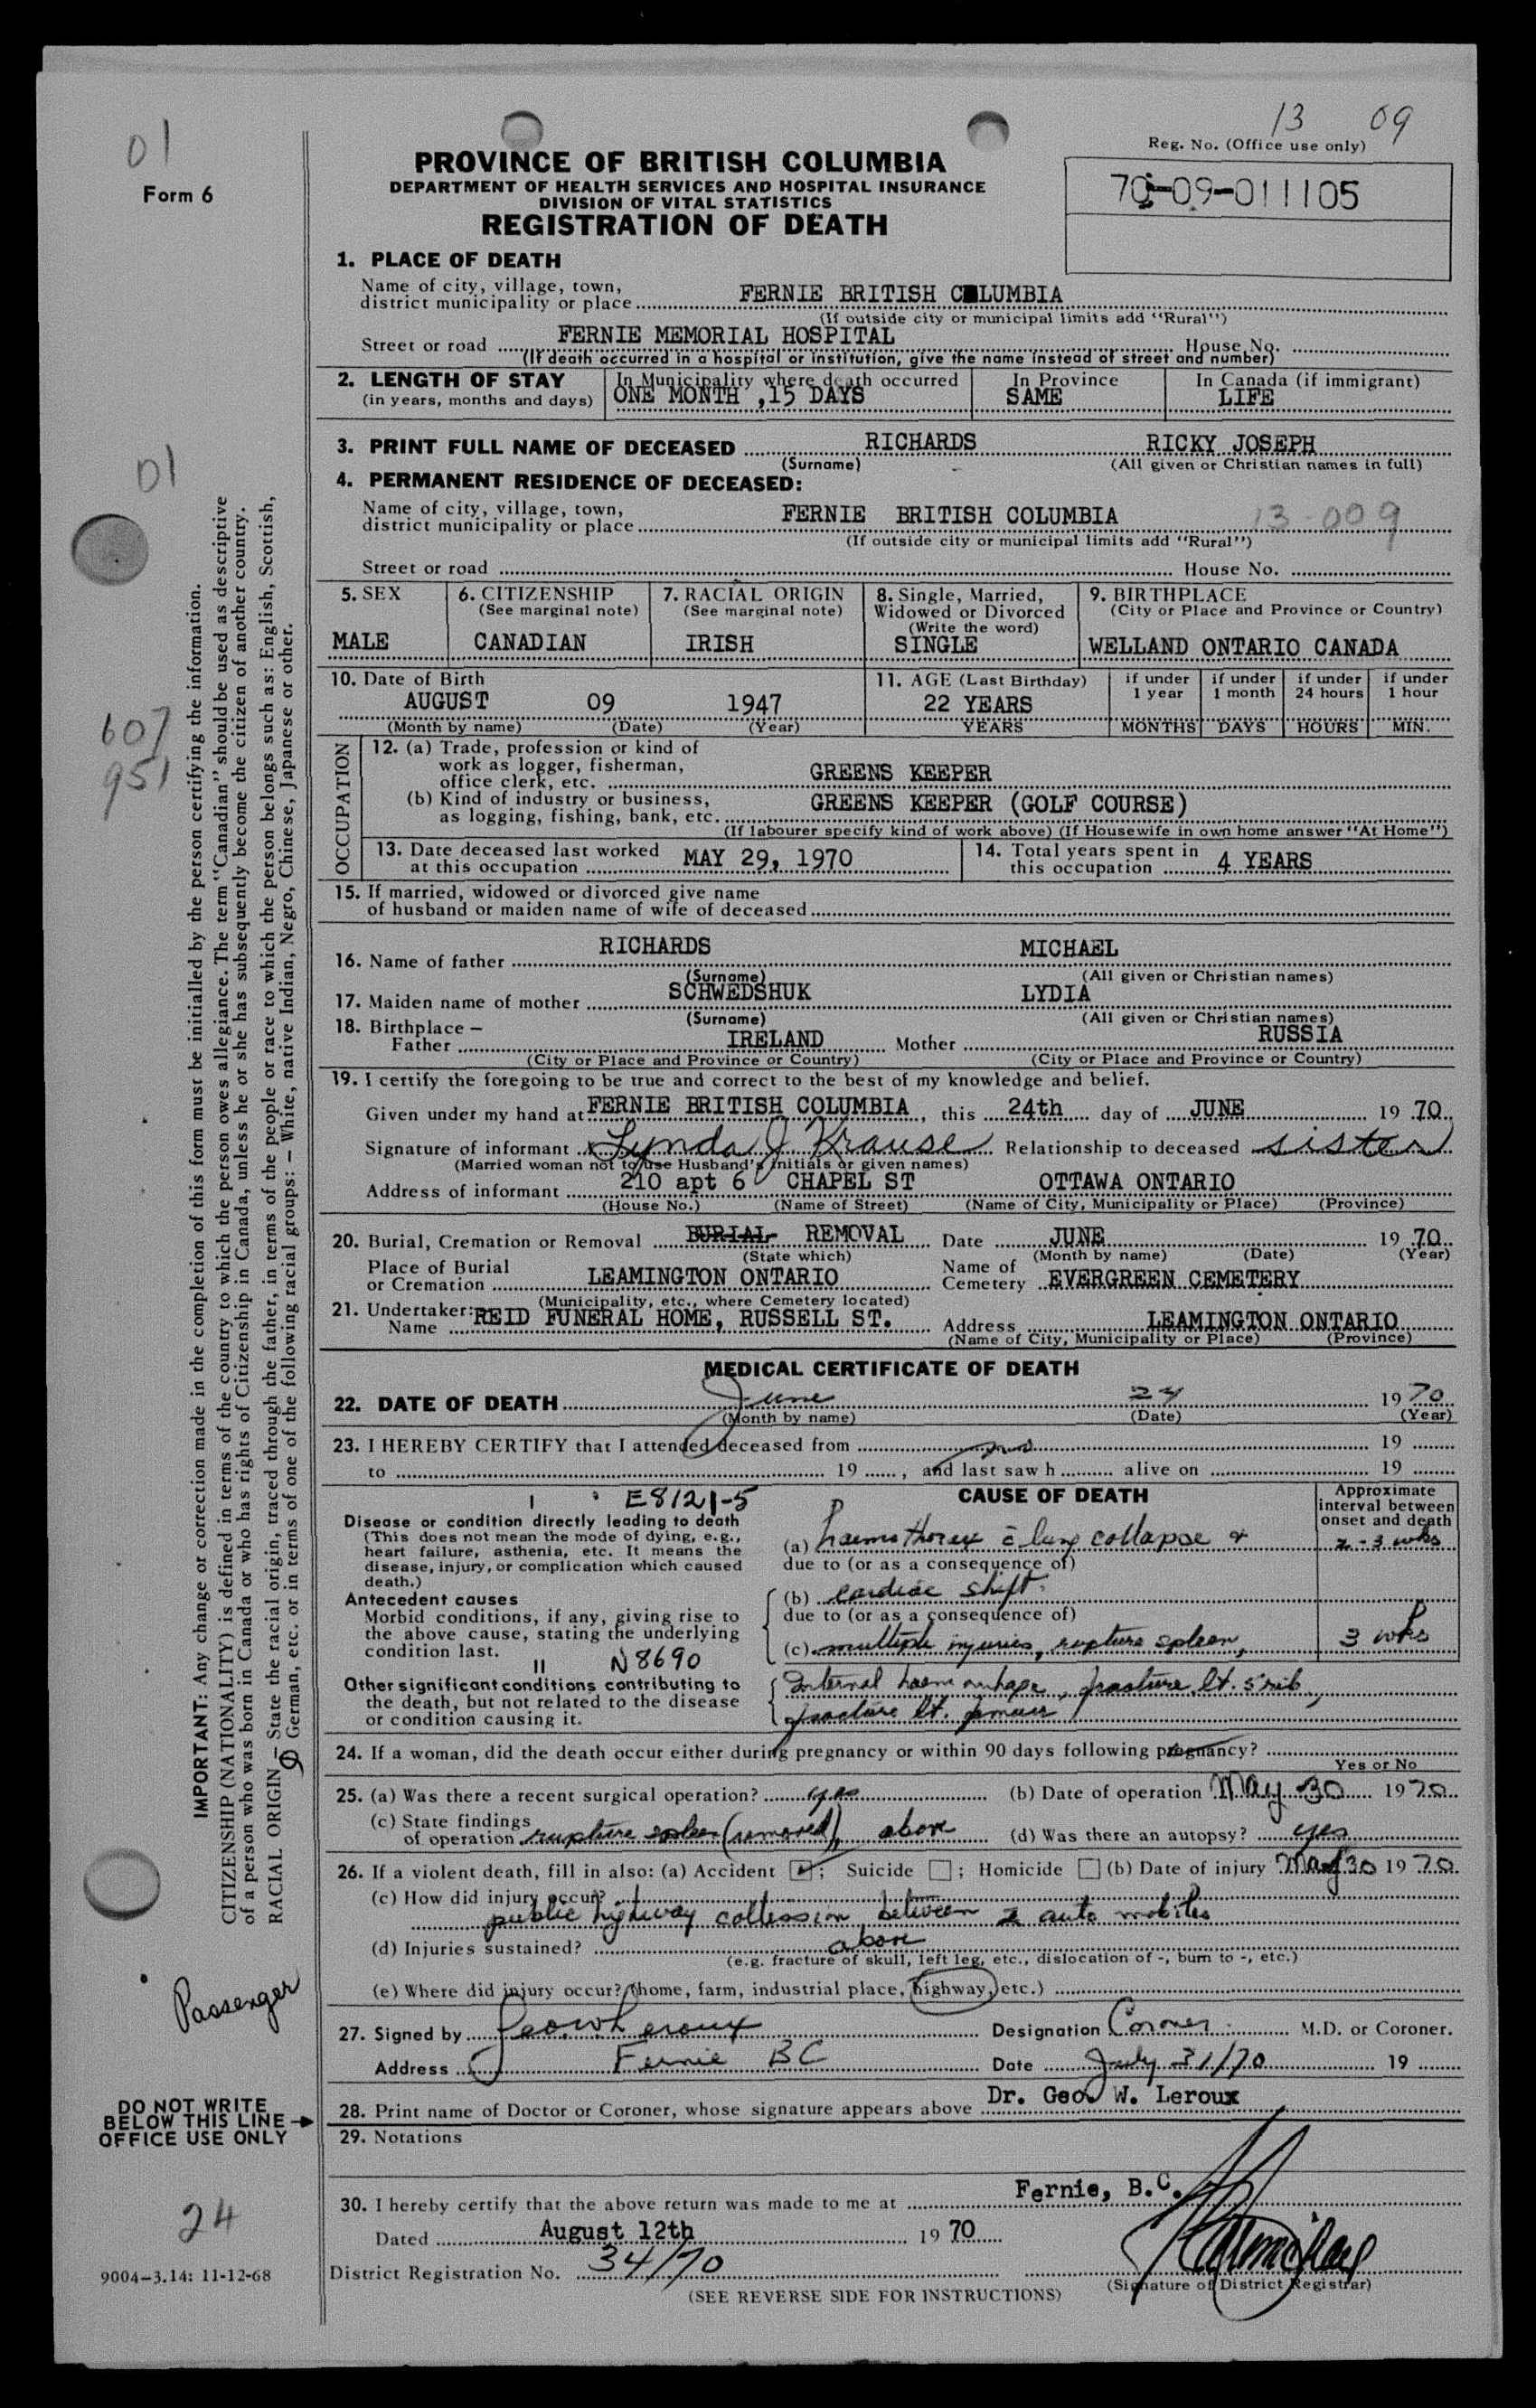 13 09
01
Form 6
PROVINCE OF BRITISH COLUMBIA
DEPARTMENT OF HEALTH SERVICES AND HOSPITAL INSURANCE
DIVISION OF VITAL STATISTICS
REGISTRATION OF DEATH
Reg. No. (Office use only)
70-09-011105
1. PLACE OF DEATH
Name of city, village, town,
district municipality or place FERNIE BRITISH COLUMBIA
(If outside city or municipal limits add "Rural")
Street or road FERNIE MEMORIAL HOSPITAL House No.
(If death occurred in a hospital or institution, give the name instead of street and number)
2. LENGTH OF STAY In Municipality where death occurred In Province In Canada (if immigrant)
(in years, months and days) ONE MONTH ,15 DAYS SAME LIFE
3. PRINT FULL NAME OF DECEASED RICHARDS RICKY JOSEPH
(Surname) (All given or Christian names in full)
01
4. PERMANENT RESIDENCE OF DECEASED:
Name of city, village, town,
district municipality or place FERNIE BRITISH COLUMBIA 13-009
(If outside city or municipal limits add "Rural")
Street or road House No.
5. SEX 6. CITIZENSHIP 7. RACIAL ORIGIN 8. Single, Married, 9. BIRTHPLACE
(See marginal note) (See marginal note) Widowed or Divorced (City or Place and Province or Country)
(Write the word)
MALE CANADIAN IRISH SINGLE WELLAND ONTARIO CANADA
10. Date of Birth 11. AGE (Last Birthday) if under 1 year if under 1 month if under 24 hours if under 1 hour
AUGUST 09 1947 22 YEARS
(Month by name) (Date) (Year) YEARS MONTHS DAYS HOURS MIN.
607
951
OCCUPATION
12. (a) Trade, profession or kind of
work as logger, fisherman,
office clerk, etc. GREENS KEEPER
(b) Kind of industry or business,
as logging, fishing, bank, etc. GREENS KEEPER (GOLF COURSE)
(If labourer specify kind of work above) (If Housewife in own home answer "At Home")
13. Date deceased last worked
at this occupation MAY 29, 1970
14. Total years spent in
this occupation 4 YEARS
15. If married, widowed or divorced give name
of husband or maiden name of wife of deceased
16. Name of father RICHARDS MICHAEL
(Surname) (All given or Christian names)
17. Maiden name of mother SCHWEDSHUK LYDIA
(Surname) (All given or Christian names)
18. Birthplace –
Father IRELAND Mother RUSSIA
(City or Place and Province or Country) (City or Place and Province or Country)
19. I certify the foregoing to be true and correct to the best of my knowledge and belief.
Given under my hand at FERNIE BRITISH COLUMBIA, this 24th day of JUNE 19 70
Signature of informant x Lynda J Krause Relationship to deceased sister
(Married woman not to use Husband's initials or given names)
Address of informant 210 apt 6 CHAPEL ST OTTAWA ONTARIO
(House No.) (Name of Street) (Name of City, Municipality or Place) (Province)
20. Burial, Cremation or Removal BURIAL REMOVAL Date JUNE 19 70
(State which) (Month by name) (Date) (Year)
Place of Burial
or Cremation LEAMINGTON ONTARIO
Name of
Cemetery EVERGREEN CEMETERY
(Municipality, etc., where Cemetery located)
21. Undertaker:
Name REID FUNERAL HOME, RUSSELL ST. Address LEAMINGTON ONTARIO
(Name of City, Municipality or Place) (Province)
MEDICAL CERTIFICATE OF DEATH
22. DATE OF DEATH June 24 19 70
(Month by name) (Date) (Year)
23. I HEREBY CERTIFY that I attended deceased from 19
to 19 , and last saw h alive on 19
I E8121-5 CAUSE OF DEATH
Approximate
interval between
onset and death
Disease or condition directly leading to death
(This does not mean the mode of dying, e.g.,
heart failure, asthenia, etc. It means the
disease, injury, or complication which caused
death.)
(a) haemothorax c̄ lung collapse & 2-3 wks
due to (or as a consequence of)
Antecedent causes
Morbid conditions, if any, giving rise to
the above cause, stating the underlying
condition last.
(b) cardiac shift.
due to (or as a consequence of)
(c) multiple injuries, rupture spleen, 3 wks
II N8690
Other significant conditions contributing to
the death, but not related to the disease
or condition causing it.
Internal haemorrhage, fracture lt. 5 rib,
fracture lt. femur
24. If a woman, did the death occur either during pregnancy or within 90 days following pregnancy?
Yes or No
25. (a) Was there a recent surgical operation? yes (b) Date of operation May 30 19 70
(c) State findings
of operation rupture spleen (removed), above (d) Was there an autopsy? yes
26. If a violent death, fill in also: (a) Accident ; Suicide ; Homicide (b) Date of injury May 30 19 70
(c) How did injury occur?
public highway collission between 2 auto mobiles
(d) Injuries sustained? above
(e.g. fracture of skull, left leg, etc., dislocation of -, burn to -, etc.)
(e) Where did injury occur? (home, farm, industrial place, highway, etc.)
Passenger
27. Signed by Geo. W. Leroux Designation Coroner M.D. or Coroner.
Address Fernie BC Date July 31/70 19
28. Print name of Doctor or Coroner, whose signature appears above Dr. Geo. W. Leroux
DO NOT WRITE
BELOW THIS LINE
OFFICE USE ONLY
29. Notations
30. I hereby certify that the above return was made to me at Fernie, B.C.
Dated August 12th 19 70
24
District Registration No. 34/70
(Signature of District Registrar)
9004-3.14: 11-12-68
(SEE REVERSE SIDE FOR INSTRUCTIONS)
IMPORTANT: Any change or correction made in the completion of this form must be initialled by the person certifying the information.
CITIZENSHIP (NATIONALITY) is defined in terms of the country to which the person owes allegiance. The term "Canadian" should be used as descriptive
of a person who was born in Canada or who has rights of Citizenship in Canada, unless he or she has subsequently become the citizen of another country.
RACIAL ORIGIN – State the racial origin, traced through the father, in terms of the people or race to which the person belongs such as: English, Scottish,
German, etc. or in terms of one of the following racial groups: – White, native Indian, Negro, Chinese, Japanese or other.